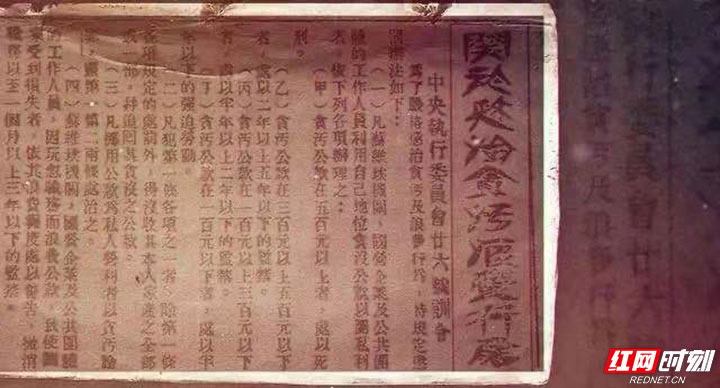 關於懲治貪污浪費行為
中央執行委員會廿六號訓令
為了嚴格懲治貪污及浪費行為,特規定懲
罰辦法如下:
(一)凡蘇維埃機關,國營企業及公共團
體的工作人員利用自己地位貪沒公款以圖私利
者依下列各項辦理之:
(甲)貪污公款在五百元以上者,處以死
刑。
(乙)貪污公款在三百元以上五百元以下
者,處以二年以上五年以下的監禁。
(丙)貪污公款在一百元以上三百元以下
者,處以半年以上二年以下的監禁。
(丁)貪污公款在一百元以下者,處以半
年以下的強迫勞動。
(二)凡犯第一條各項之一者,除第一條
各項規定的處罰外,得沒收其本人家產之全部
或一部,并追回其貪沒之公款。
(三)凡挪用公款為私人營利者以貪污論
罪,照第一第二兩條處治之。
(四)蘇維埃機關,國營企業及公共團體
的工作人員,因玩忽職務而浪費公款,致使國
家受到損失者,依其浪費程度處以警告,撤消
職務以至一個月以上三年以下的監禁。
行委員會廿六
貪污及浪費行
红网时刻
REDNET.CN